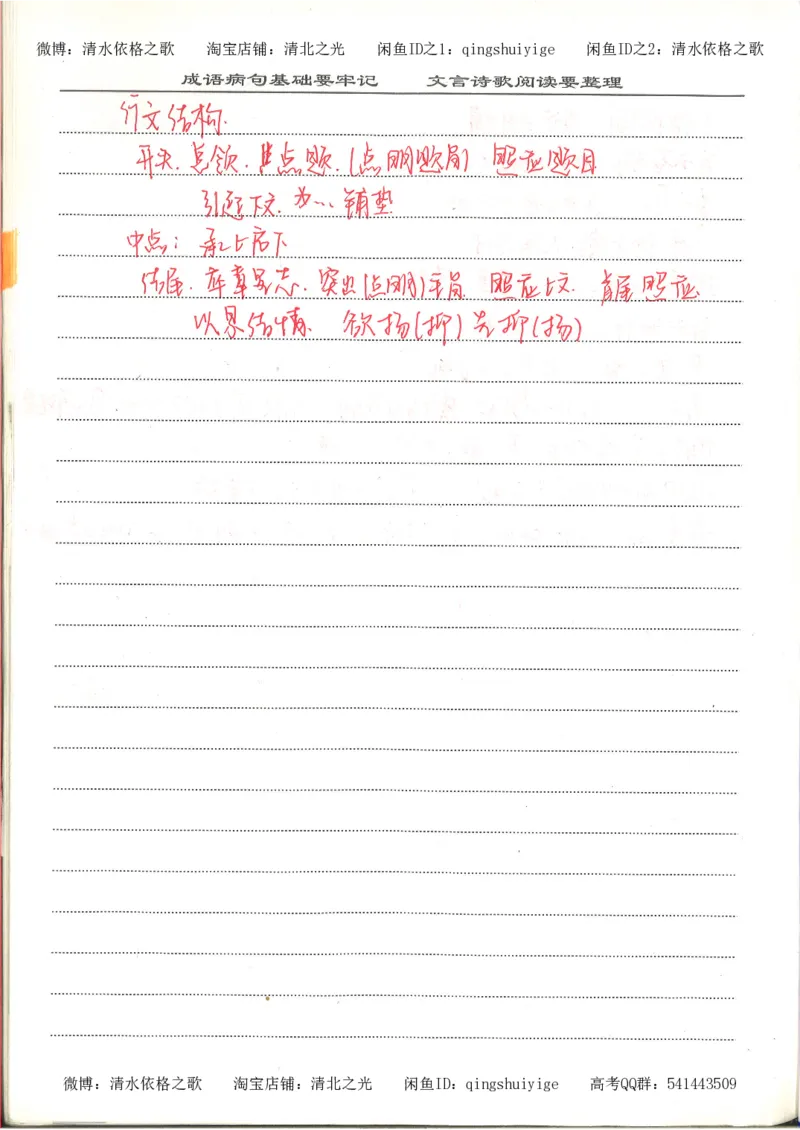 微博: 清水依格之歌 淘宝店铺: 清北之光 闲鱼ID之1: qingshuiyige 闲鱼ID之2: 清水依格之歌
成语病句基础要牢记 文言诗歌阅读要整理
行文结构.
开头. 总领. 点题. (点明题旨) 照应题目
引起下文. 为... 铺垫
中点: 承上启下
结尾. 卒章显志. 突出(点明)主旨 照应上文. 首尾照应
以景结情. 欲扬(抑)先抑(扬)
微博: 清水依格之歌 淘宝店铺: 清北之光 闲鱼ID: qingshuiyige 高考QQ群: 541443509